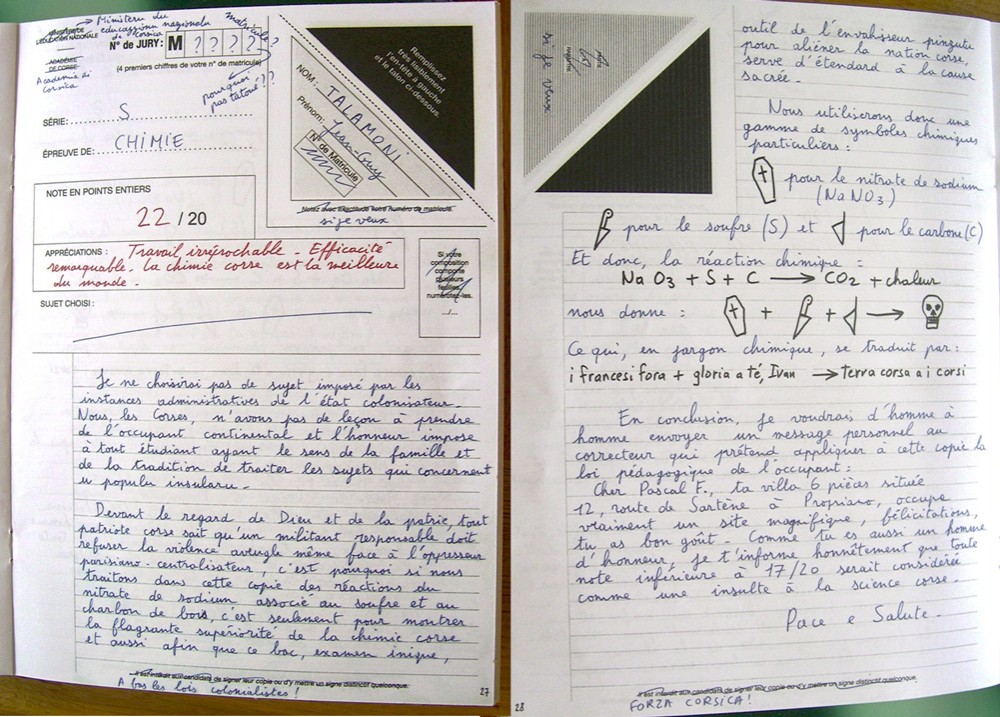 Ministeru du
educazionu naziunalu
di Corsica
MINISTÈRE DE
L'ÉDUCATION NATIONALE
matricule?
N° de JURY: M ? ? ? ?
ACADÉMIE
DE CORSE
Academia di
Corsica
(4 premiers chiffres de votre n° de matricule)
pourquoi
pas tatoué!??
SÉRIE: S
ÉPREUVE DE: CHIMIE
Remplissez
très lisiblement
l'en-tête à gauche
et le talon ci-dessous.
NOM: TALAMONI
Prénom: Jean-Guy
N° de Matricule
Notez avec exactitude votre numéro de matricule.
si je veux
NOTE EN POINTS ENTIERS
22 / 20
APPRÉCIATIONS : Travail irréprochable - Efficacité
remarquable. La chimie corse est la meilleure
du monde.
Si votre
composition
comporte
plusieurs
feuilles,
numérotez-les.
SUJET CHOISI :
Je ne choisirai pas de sujet imposé par les
instances administratives de l'état colonisateur.
Nous, les Corses, n'avons pas de leçon à prendre
de l'occupant continental et l'honneur impose
à tout étudiant ayant le sens de la famille et
de la tradition de traiter les sujets qui concernent
u populu insularu.
Devant le regard de Dieu et de la patrie, tout
patriote corse sait qu'un militant responsable doit
refuser la violence aveugle même face à l'oppresseur
parisiano-centralisateur : c'est pourquoi si nous
traitons dans cette copie des réactions du
nitrate de sodium associé au soufre et au
charbon de bois, c'est seulement pour montrer
la flagrante supériorité de la chimie corse
et aussi afin que ce bac, examen inique,
Il est interdit aux candidats de signer leur copie ou d'y mettre un signe distinctif quelconque.
A bas les lois colonialistes!
27
si je veux
outil de l'envahisseur pinzutu
pour aliéner la nation corse,
serve d'étendard à la cause
sacrée.
Nous utiliserons donc une
gamme de symboles chimiques
particuliers :
pour le nitrate de sodium
(NaNO3)
pour le soufre (S) et pour le carbone (C)
Et donc, la réaction chimique :
Na O3 + S + C → CO2 + chaleur
nous donne : + + →
Ce qui, en jargon chimique, se traduit par :
i francesi fora + gloria a té, Ivan → terra corsa a i corsi
En conclusion, je voudrais d'homme à
homme envoyer un message personnel au
correcteur qui prétend appliquer à cette copie la
loi pédagogique de l'occupant :
Cher Pascal F., ta villa 6 pièces située
12, route de Sartène à Propriano, occupe
vraiment un site magnifique, félicitations,
tu as bon goût. Comme tu es aussi un homme
d'honneur, je t'informe honnêtement que toute
note inférieure à 17/20 serait considérée
comme une insulte à la science corse.
Pace e Salute.
Il est interdit aux candidats de signer leur copie ou d'y mettre un signe distinctif quelconque.
FORZA CORSICA!
28